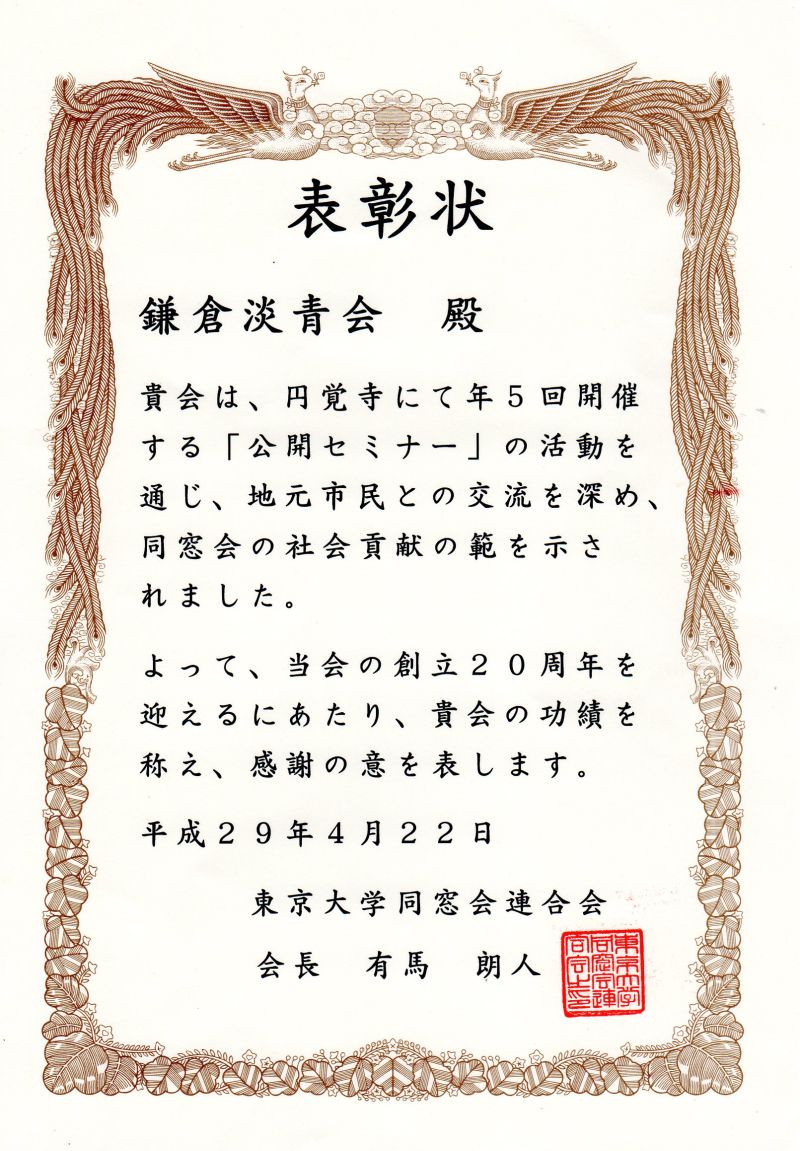 表彰状
鎌倉淡青会　殿
貴会は、円覚寺にて年５回開催
する「公開セミナー」の活動を
通じ、地元市民との交流を深め、
同窓会の社会貢献の範を示さ
れました。
よって、当会の創立２０周年を
迎えるにあたり、貴会の功績を
称え、感謝の意を表します。
平成２９年４月２２日
東京大学同窓会連合会
会長　有馬　朗人